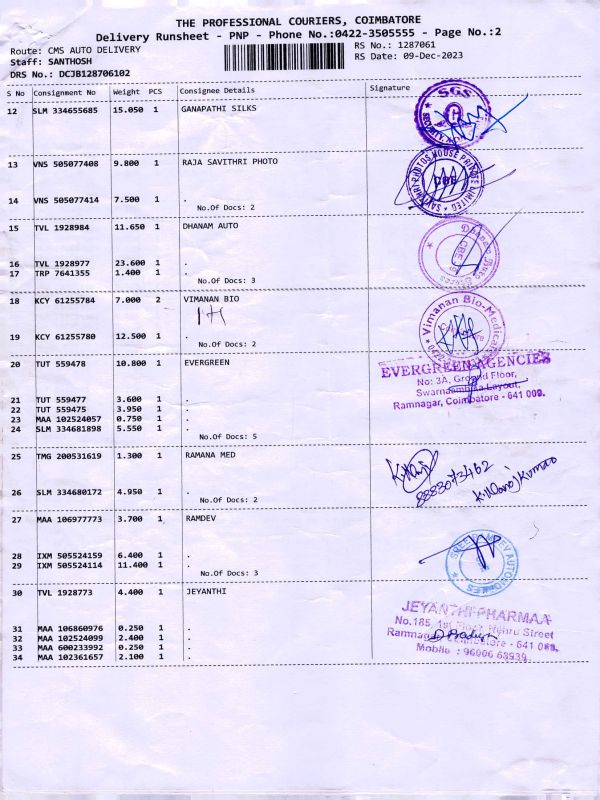 THE PROFESSIONAL COURIERS, COIMBATORE
Delivery Runsheet - PNP - Phone No.:0422-3505555 - Page No.:2
Route: CMS AUTO DELIVERY RS No.: 1287061
Staff: SANTHOSH RS Date: 09-Dec-2023
DRS No.: DCJB128706102
S No Consignment No Weight PCS Consignee Details Signature
12 SLM 334655685 15.050 1 GANAPATHI SILKS
SGS
SECURITY
13 VNS 505077408 9.800 1 RAJA SAVITHRI PHOTO
SAVITHRI PHOTOS HOUSE PRIVATE LIMITED
CBE
14 VNS 505077414 7.500 1 .
No.Of Docs: 2
15 TVL 1928984 11.650 1 DHANAM AUTO
Dhanam Auto
CBE
16 TVL 1928977 23.600 1 .
17 TRP 7641355 1.400 1 .
No.Of Docs: 3
18 KCY 61255784 7.000 2 VIMANAN BIO
Vimanan Bio-Medical
19 KCY 61255780 12.500 1 .
No.Of Docs: 2
20 TUT 559478 10.800 1 EVERGREEN
EVERGREEN AGENCIES
No: 3A, Ground Floor,
Swarnambika Layout,
Ramnagar, Coimbatore - 641 009.
21 TUT 559477 3.600 1 .
22 TUT 559475 3.950 1 .
23 MAA 102524057 0.750 1 .
24 SLM 334681898 5.550 1 .
No.Of Docs: 5
25 TMG 200531619 1.300 1 RAMANA MED
8883073462
K.Manoj Kumar
26 SLM 334680172 4.950 1 .
No.Of Docs: 2
27 MAA 106977773 3.700 1 RAMDEV
28 IXM 505524159 6.400 1 .
29 IXM 505524114 11.400 1 .
No.Of Docs: 3
30 TVL 1928773 4.400 1 JEYANTHI
JEYANTHI PHARMAA
No.185, 1st Floor, Nehru Street
Ramnagar, Coimbatore - 641 009.
Mobile : 90006 68939
31 MAA 106860976 0.250 1 .
32 MAA 102524099 2.400 1 .
33 MAA 600233992 0.250 1 .
34 MAA 102361657 2.100 1 .